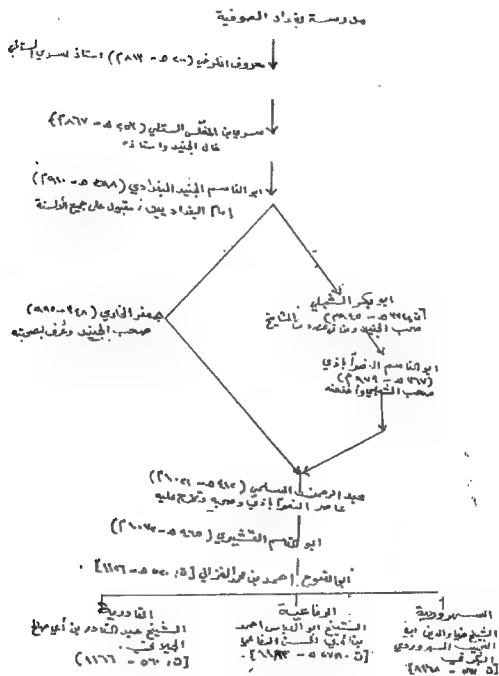 مدرسة بغداد الصوفية
معروف الكرخي (٢٠٠هـ - ٨١٣م) استاذ لسري السقطي
سري بن المغلس السقطي (٢٥٣هـ - ٨٦٧م)
خال الجنيد واستاذه
ابو القاسم الجنيد البغدادي (٢٩٨هـ - ٩١٠م)
امام البغداديين، مقبول على جميع الالسنة
ابو بكر الشبلي
صحب الجنيد ومن في عصره من المشايخ
جعفر الخلدي (٣٤٨ - ٩٥٩م)
صحب الجنيد وعرف بصحبته
ابو القاسم النصرآباذي
(٣٦٧هـ - ٩٧٩م)
صحب الشبلي
عبد الرحمن السلمي (٤١٢هـ - ١٠٢١م)
عاصر النصرآباذي وصحبه وتخرج عليه
ابو القاسم القشيري (٤٦٥هـ - ١٠٧٢م)
ابو الفتوح احمد بن محمد الغزالي [ت: ٥٢٠هـ - ١١٢٦م]
القادرية
الشيخ عبد القادر بن أبي صالح
[ت: ٥٦٠هـ - ١١٦٦م]
الرفاعية
الشيخ ابو العباس احمد
بن أبي الحسن الرفاعي
[ت: ٥٧٨هـ - ١١٨٣م]
السهروردية
الشيخ ضياء الدين ابو
النجيب السهروردي
البكري